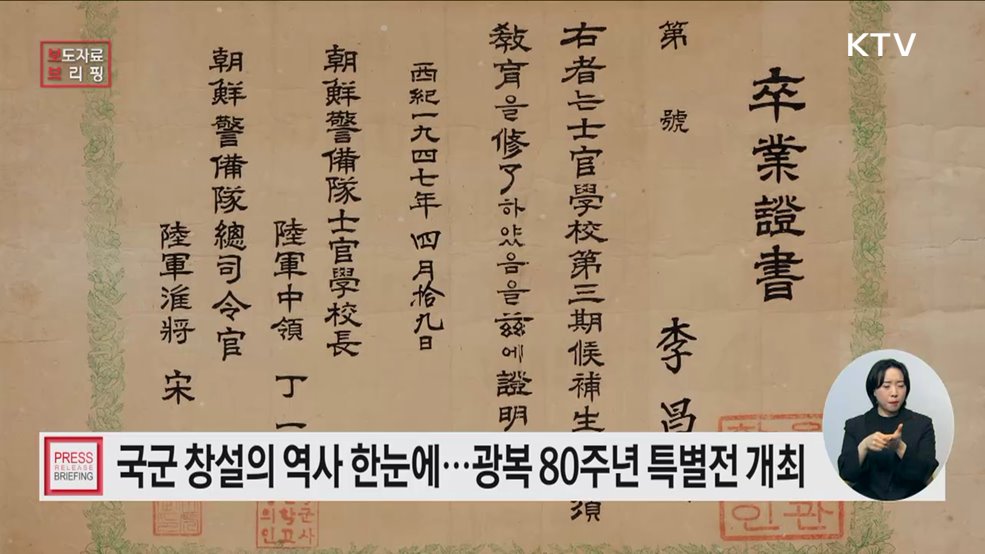 보도자료
브리핑
KTV
卒業證書
第 號
李昌
右者는士官學校第三期候補生 須
敎育을修了하얏음을玆에證明
西紀一九四七年 四月拾九日
朝鮮警備隊士官學校長
陸軍中領 丁一
朝鮮警備隊總司令官
陸軍准將 宋
PRESS
RELEASE
BRIEFING
국군 창설의 역사 한눈에…광복 80주년 특별전 개최